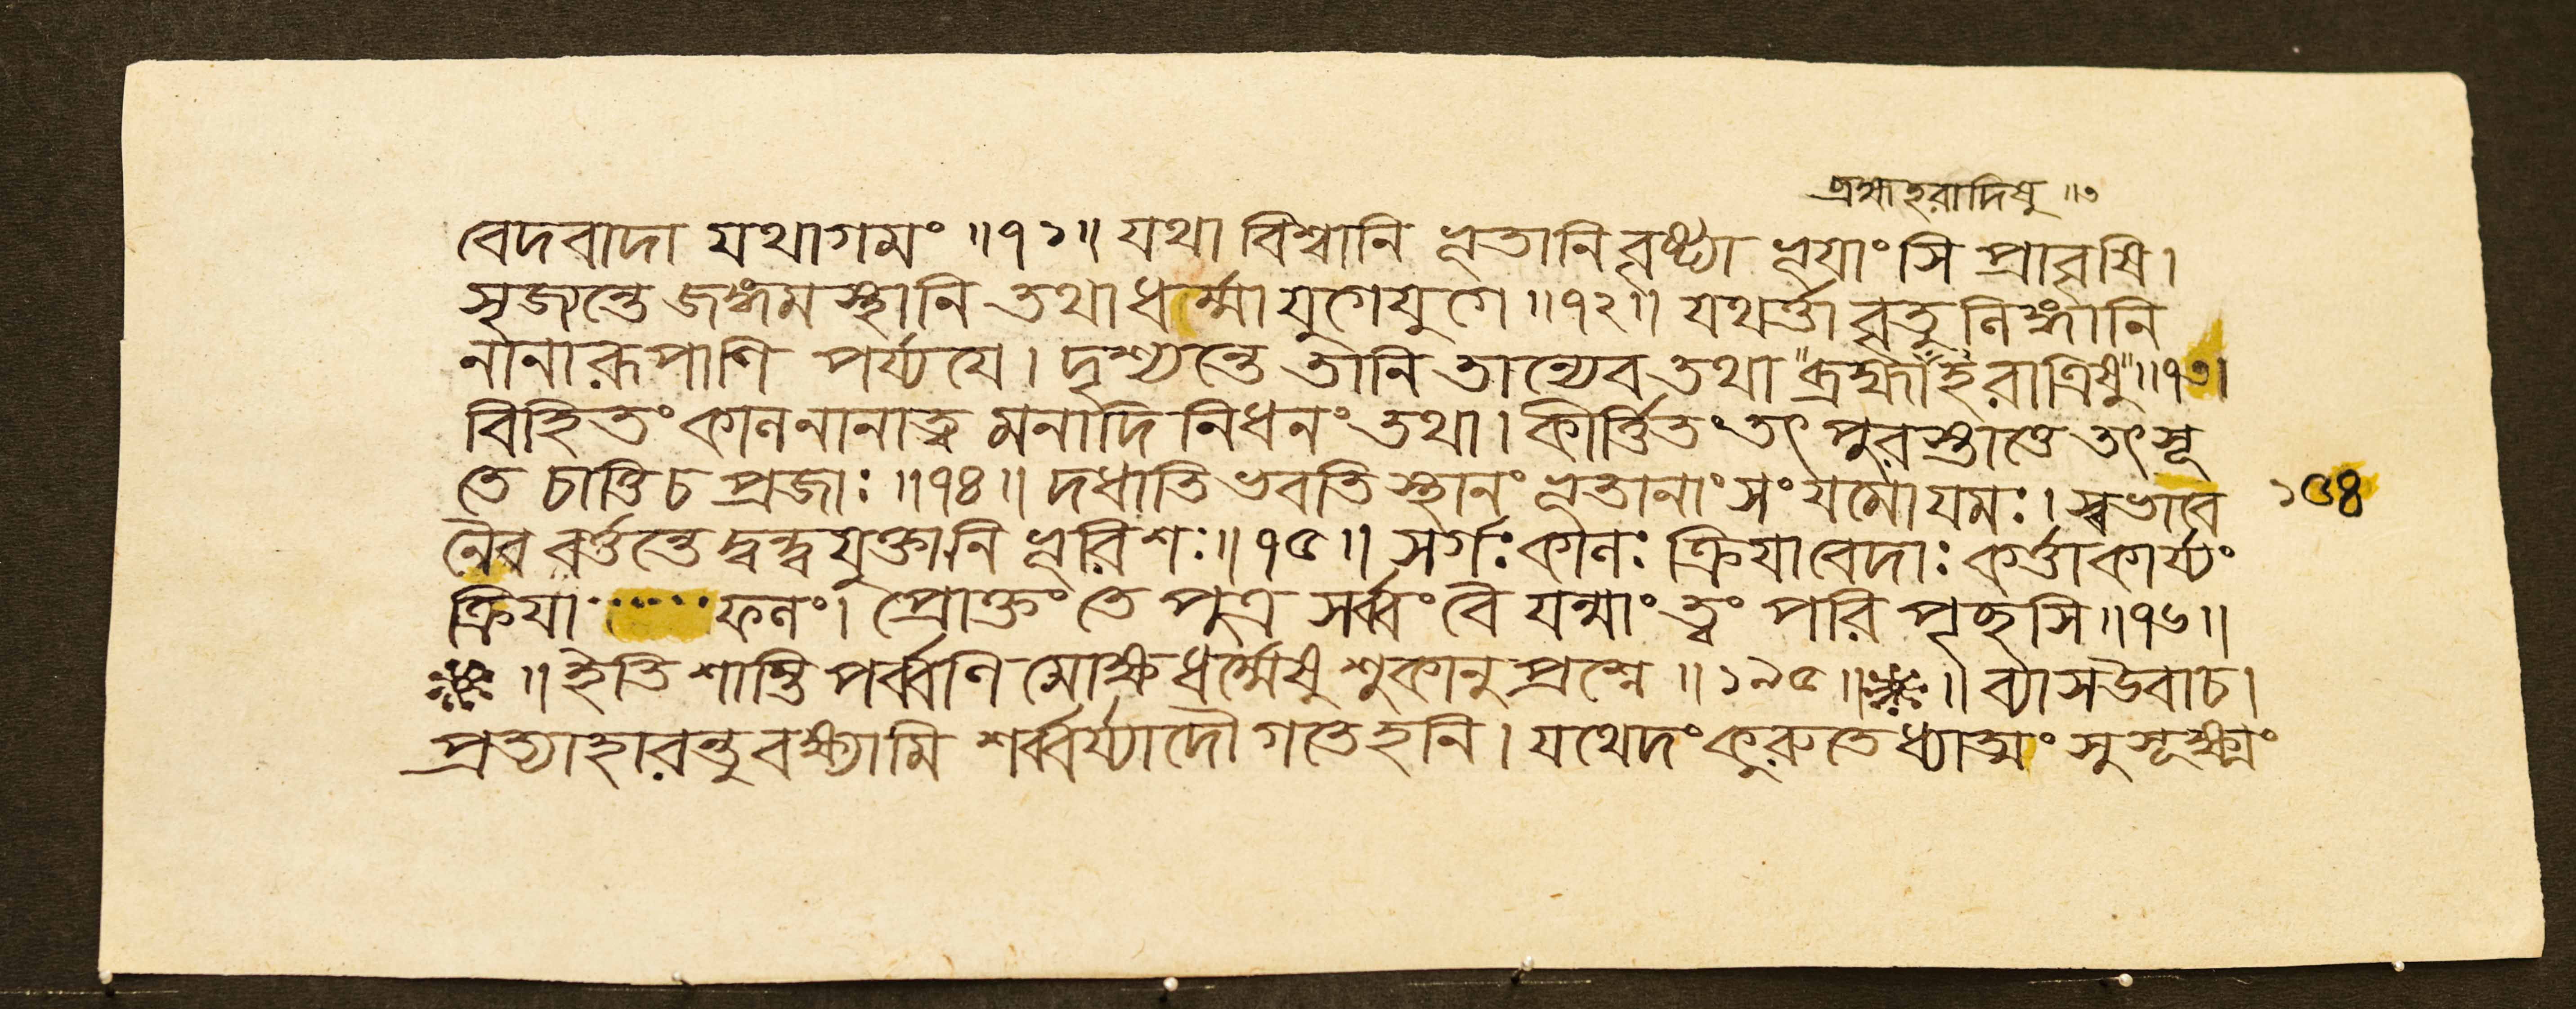 ব্রহ্মাহরাদিষু ॥৩
বেদবাদা যথাগমং ॥৭১॥ যথা বিশ্বানি ভূতানি বৃষ্ট্যা ভূয়াংসি প্রাবৃষি।
সৃজ্যন্তে জঙ্গমস্থানি তথা ধর্ম্মা যুগেযুগে ॥৭২॥ যথর্ত্তাবৃতুলিঙ্গানি
নানারূপাণি পর্য্যয়ে। দৃশ্যন্তে তানি তান্যেব তথা "ব্রহ্মাহরাত্রিষু"॥৭৩।
বিহিতং কালনানাত্বমনাদিনিধনং তথা। কীর্ত্তিতং তৎ পুরস্তাত্তে তৎ সূ
তে চাত্তি চ প্রজাঃ ॥৭৪॥ দধাতি ভবতি স্থানং ভূতানাং সংযমো যমঃ। স্বভাবে
১৩৪
নৈব বর্ত্তন্তে দ্বন্দ্বযুক্তানি ভূরিশঃ॥৭৫॥ সর্গঃ কালঃ ক্রিয়া বেদাঃ কর্ত্তা কার্য্যং
ক্রিয়া ফলং। প্রোক্তং তে পুত্র সর্ব্বং বৈ যন্মাং ত্বং পরিপৃচ্ছসি॥৭৬॥
॥ ইতি শান্তিপর্ব্বণি মোক্ষধর্ম্মেষু শুকানুপ্রশ্নে ॥১৯৫॥ ॥ ব্যাসউবাচ।
প্রত্যাহারন্তু বক্ষ্যামি শর্ব্বর্য্যাদৌ গতেহনি। যথেদং কুরুতেধ্যাত্মং সুসূক্ষ্মং